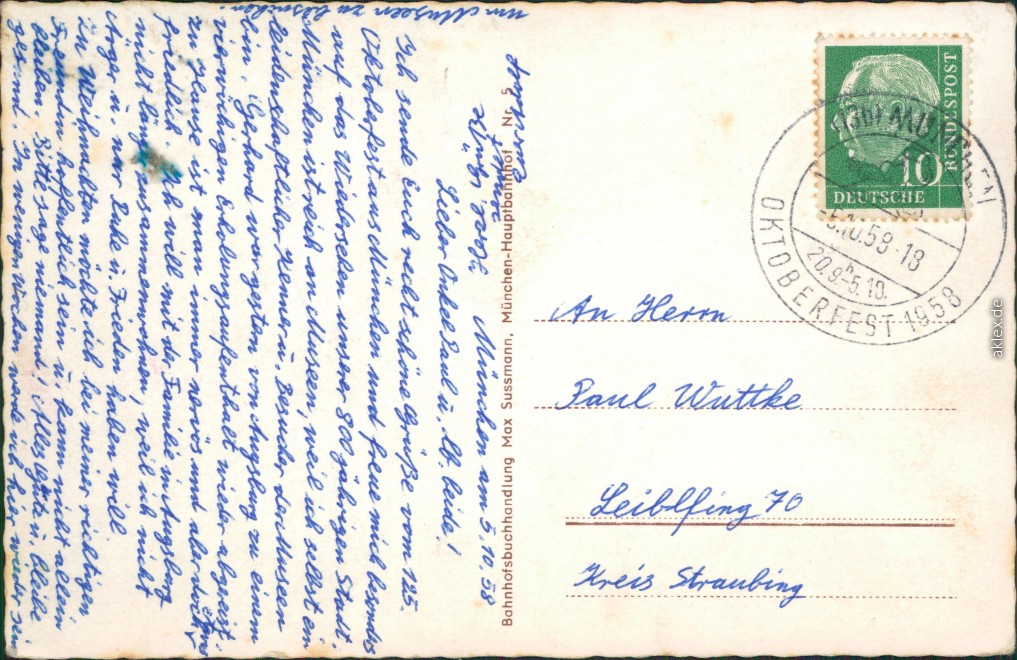 München am 5.10.58
Lieber Onkel Paul u. lb. beide!
Ich sende Euch recht schöne Grüße vom 125.
Oktoberfest aus München und freue mich besonders
auf das Wiedersehen unserer 800 jährigen Stadt.
München ist reich an Museen, weil ich selbst ein
leidenschaftlicher Kenner u. Besucher der Museen
bin. Gerhard war gestern von Augsburg zu einem
vierwöchigen Erholungsaufenthalt wieder abgereist.
zu Hause ist man immer nervös und aber
friedlich. Ich will mit der Familie in Augsburg
nicht länger zusammenleben, weil ich nicht
Ärger u. nur Ruhe u. Frieden haben will.
Zu Weihnachten möchte ich bei meiner richtigen
Freundin hoffentlich sein u. kann nicht allein
bleiben. Bitte sage niemand! Alles Gute u. bleibe
gesund. In wenigen Wochen werde ich hier wieder sein
um Museen zu besuchen
Bahnhofsbuchhandlung Max Sussmann, München-Hauptbahnhof Nr. 5
An Herrn
Paul Wuttke
Leiblfing 70
Kreis Straubing
10
DEUTSCHE
BUNDESPOST
(13b) MÜNCHEN
5.10.58-18
20.9.-5.10.
OKTOBERFEST 1958
aklex.de